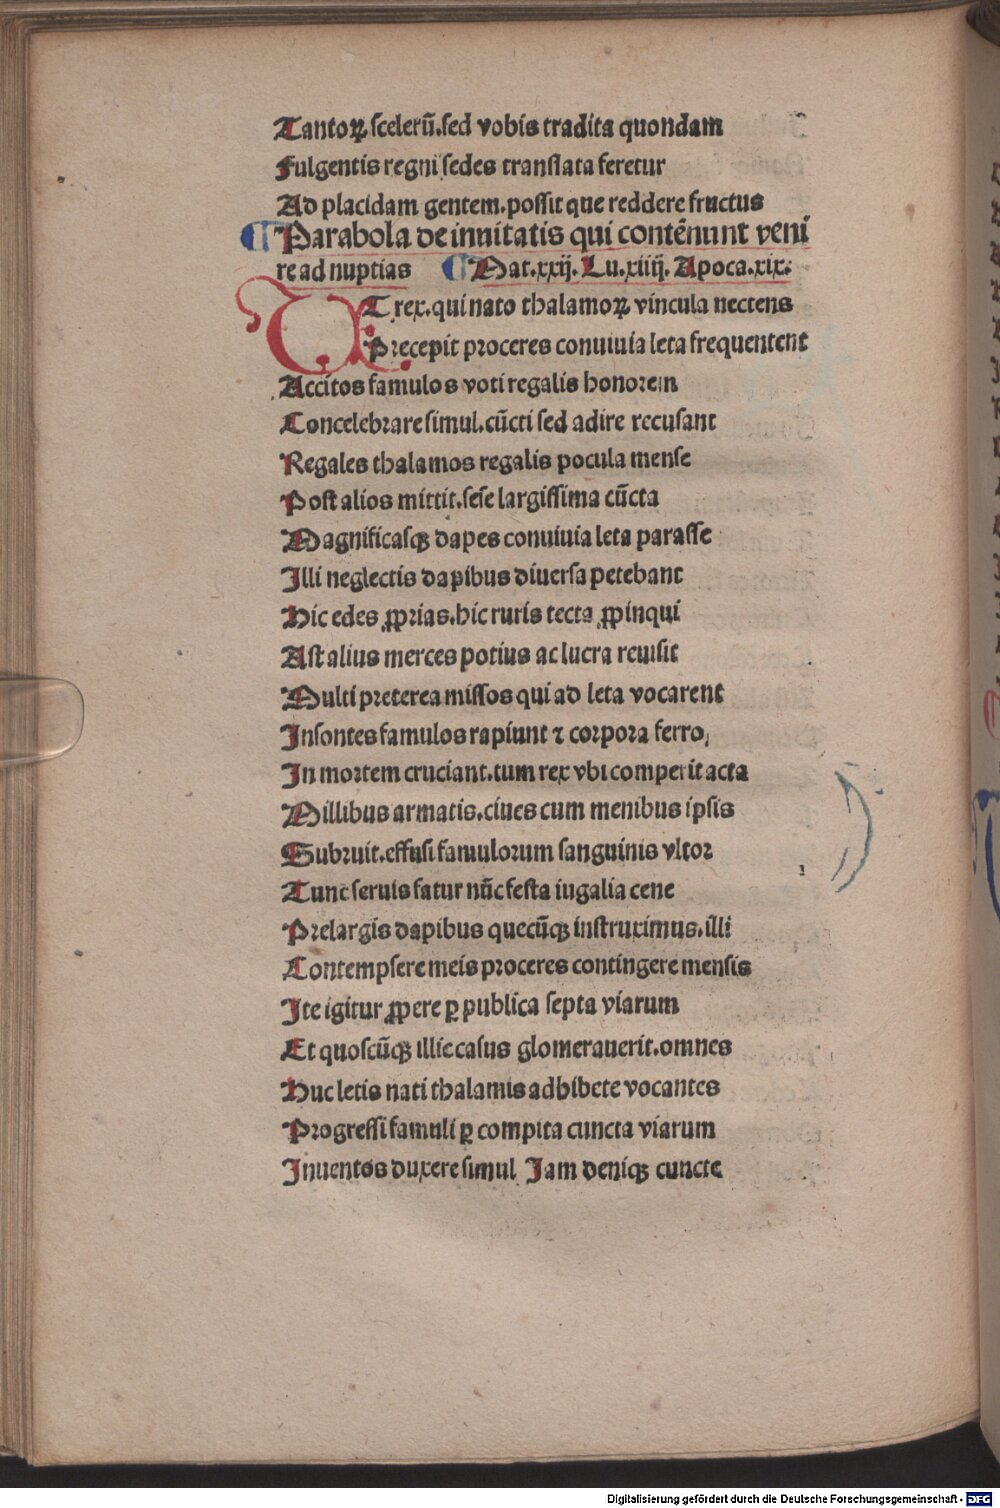 Tantoꝝ scelerū.sed vobis tradita quondam
Fulgentis regni sedes translata feretur
Ad placidam gentem.possit que reddere fructus
¶ Parabola de inuitatis qui contēnunt veni
re ad nuptias ¶ Mat.xxij. Lu.xiiij. Apoca.xix.
VT rex.qui nato thalamoꝝ vincula nectens
Precepit proceres conuiuia leta frequentent
Accitos famulos voti regalis honorem
Concelebrare simul.cūcti sed adire recusant
Regales thalamos regalis pocula mense
Post alios mittit.sese largissima cūcta
Magnificasqꝫ dapes conuiuia leta parasse
Illi neglectis dapibus diuersa petebant
Hic edes ꝓprias.hic ruris tecta ꝓpinqui
Ast alius merces potius ac lucra reuisit
Multi preterea missos qui ad leta vocarent
Insontes famulos rapiunt ⁊ corpora ferro,
In mortem cruciant.tum rex vbi comperit acta
Millibus armatis.ciues cum menibus ipsis
Subruit.effusi famulorum sanguinis vltor
Tunc seruis fatur nūc festa iugalia cene
Prelargis dapibus quecūqꝫ instruximus.illi
Contempsere meis proceres contingere mensis
Ite igitur ꝓpere ꝑ publica septa viarum
Et quoscūqꝫ illic casus glomerauerit.omnes
Huc letis nati thalamis adhibete vocantes
Progressi famuli ꝑ compita cuncta viarum
Inuentos duxere simul Jam deniqꝫ cuncte
Digitalisierung gefördert durch die Deutsche Forschungsgemeinschaft - DFG